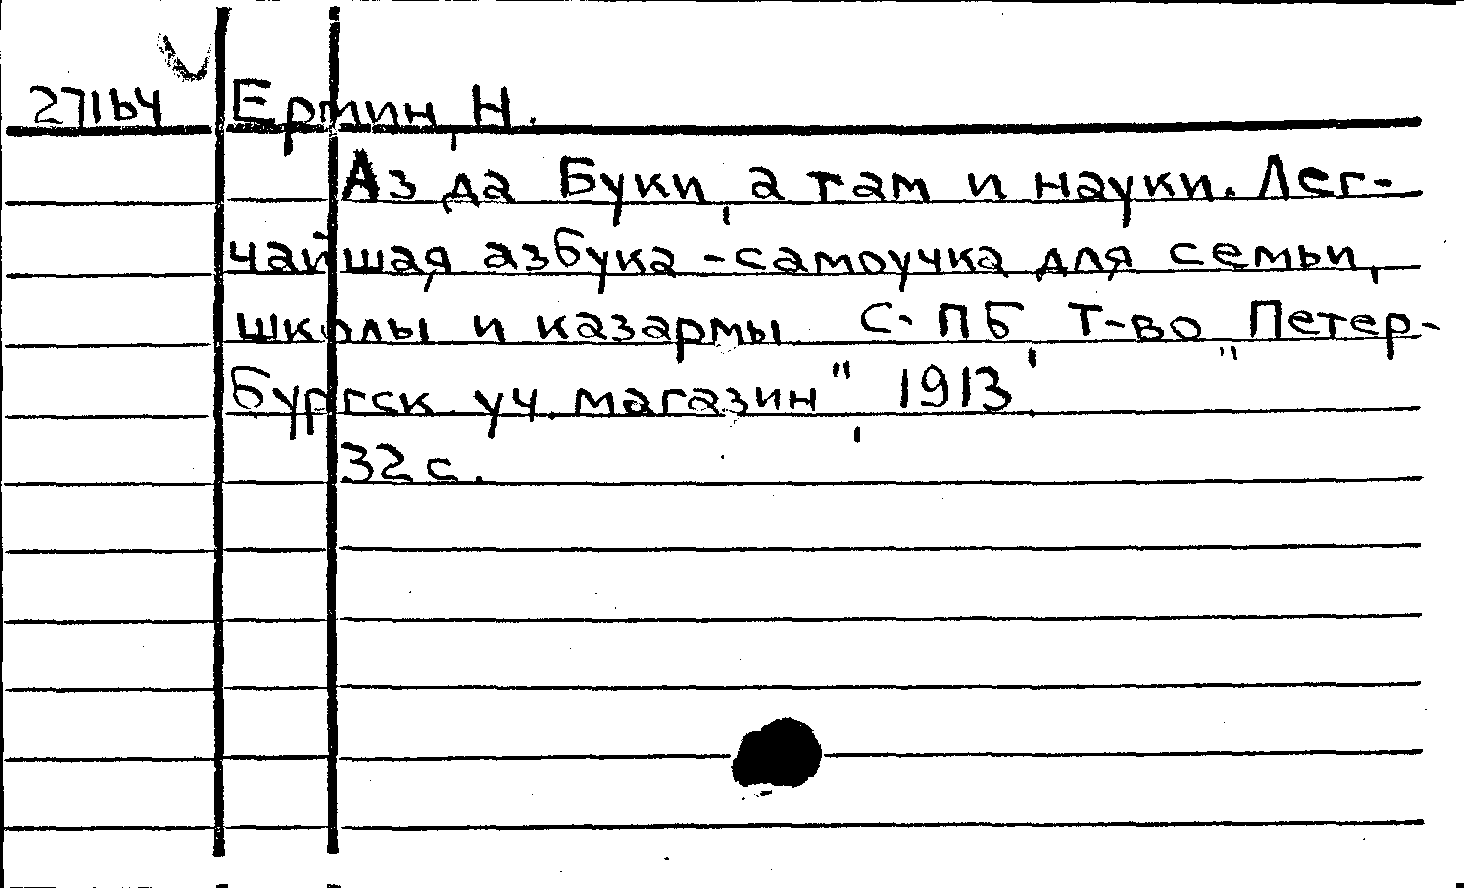 27164 Ермин, Н.
Аз да Буки, а там и науки. Лег-
чайшая азбука-самоучка для семьи,
школы и казармы. С-ПБ, Т-во „Петер-
бургск. уч. магазин", 1913.
32 с.